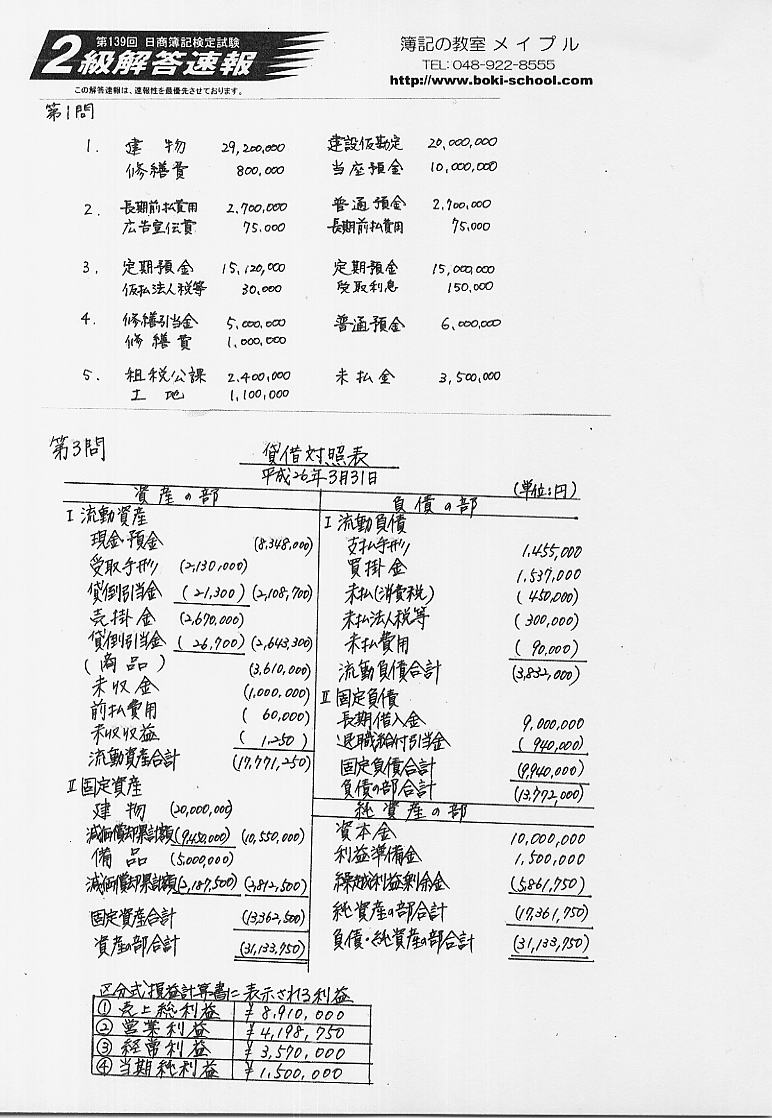 第139回 日商簿記検定試験
2級解答速報
この解答速報は、速報性を最優先させております。
簿記の教室 メイプル
TEL: 048-922-8555
http://www.boki-school.com
第1問
1. 建物 29,200,000 建設仮勘定 20,000,000
修繕費 800,000 当座預金 10,000,000
2. 長期前払費用 2,700,000 普通預金 2,700,000
広告宣伝費 75,000 長期前払費用 75,000
3. 定期預金 15,120,000 定期預金 15,000,000
仮払法人税等 30,000 受取利息 150,000
4. 修繕引当金 5,000,000 普通預金 6,000,000
修繕費 1,000,000
5. 租税公課 2,400,000 未払金 3,500,000
土地 1,100,000
第3問
貸借対照表
平成26年3月31日
(単位:円)
資産の部
I 流動資産
現金・預金 (8,348,000)
受取手形 (2,130,000)
貸倒引当金 (21,300) (2,108,700)
売掛金 (2,670,000)
貸倒引当金 (26,700) (2,643,300)
(商品) (3,610,000)
未収金 (1,000,000)
前払費用 (60,000)
未収収益 (1,250)
流動資産合計 (17,771,250)
II 固定資産
建物 (20,000,000)
減価償却累計額 (9,450,000) (10,550,000)
備品 (5,000,000)
減価償却累計額 (2,187,500) (2,812,500)
固定資産合計 (13,362,500)
資産の部合計 (31,133,750)
負債の部
I 流動負債
支払手形 1,455,000
買掛金 1,537,000
未払(消費税) (450,000)
未払法人税等 (300,000)
未払費用 (90,000)
流動負債合計 (3,832,000)
II 固定負債
長期借入金 9,000,000
退職給付引当金 (940,000)
固定負債合計 (9,940,000)
負債の部合計 (13,772,000)
純資産の部
資本金 10,000,000
利益準備金 1,500,000
繰越利益剰余金 (5,861,750)
純資産の部合計 (17,361,750)
負債・純資産の部合計 (31,133,750)
区分式損益計算書に表示される利益
① 売上総利益 ¥8,910,000
② 営業利益 ¥4,198,750
③ 経常利益 ¥3,570,000
④ 当期純利益 ¥1,500,000